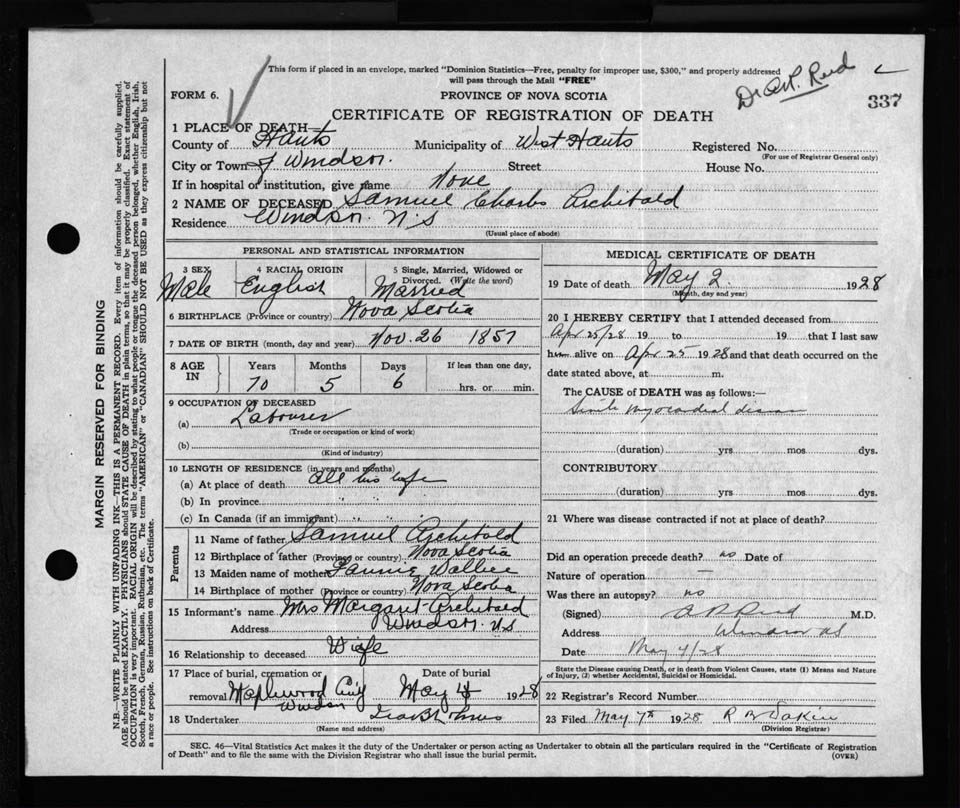 This form if placed in an envelope, marked "Dominion Statistics—Free, penalty for improper use, $300," and properly addressed
will pass through the Mail "FREE"
Dr A.R. Reid
FORM 6.
PROVINCE OF NOVA SCOTIA
337
CERTIFICATE OF REGISTRATION OF DEATH
1 PLACE OF DEATH—
County of Hants Municipality of West Hants Registered No.
(For use of Registrar General only)
City or Town of Windsor. Street House No.
If in hospital or institution, give name None
2 NAME OF DECEASED Samuel Charles Archibald
Residence Windsor. N.S
(Usual place of abode)
PERSONAL AND STATISTICAL INFORMATION
3 SEX 4 RACIAL ORIGIN 5 Single, Married, Widowed or
Divorced. (Write the word)
Male English Married
6 BIRTHPLACE (Province or country) Nova Scotia
7 DATE OF BIRTH (month, day and year) Nov. 26 1857
8 AGE IN Years Months Days If less than one day,
70 5 6 hrs. or min.
9 OCCUPATION OF DECEASED
(a) Labourer
(Trade or occupation or kind of work)
(b)
(Kind of industry)
10 LENGTH OF RESIDENCE (in years and months)
(a) At place of death all his life
(b) In province " "
(c) In Canada (if an immigrant) " "
Parents
11 Name of father Samuel Archibald
12 Birthplace of father (Province or country) Nova Scotia
13 Maiden name of mother Fannie
14 Birthplace of mother (Province or country) Nova Scotia
15 Informant's name Mrs Margaret Archibald
Address Windsor. N.S
16 Relationship to deceased Wife
17 Place of burial, cremation or Date of burial
removal Maplewood May 4 1928
Windsor
18 Undertaker
(Name and address)
MEDICAL CERTIFICATE OF DEATH
19 Date of death May 2. 1928
(Month, day and year)
20 I HEREBY CERTIFY that I attended deceased from
Apr 25/28 19 to 19 that I last saw
him alive on Apr 25 1928 and that death occurred on
date stated above, at m.
The CAUSE of DEATH was as follows:—
Senile myocardial disease
(duration) yrs mos dys.
CONTRIBUTORY
(duration) yrs. mos dys.
21 Where was disease contracted if not at place of death?
Did an operation precede death? no Date of
Nature of operation —
Was there an autopsy? no
(Signed) A R Reid M.D.
Address Windsor NS
Date May 4/28
State the Disease causing Death, or in death from Violent Causes, state (1) Means and Nature
of Injury, (2) whether Accidental, Suicidal or Homicidal.
22 Registrar's Record Number
23 Filed May 7th 1928 R B Dakin
(Division Registrar)
SEC. 46—Vital Statistics Act makes it the duty of the Undertaker or person acting as Undertaker to obtain all the particulars required in the "Certificate of Registration
of Death" and to file the same with the Division Registrar who shall issue the burial permit.
(OVER)
MARGIN RESERVED FOR BINDING
N.B.—WRITE PLAINLY WITH UNFADING INK—THIS IS A PERMANENT RECORD. Every item of information should be carefully supplied.
AGE should be stated EXACTLY. PHYSICIANS should STATE CAUSE OF DEATH in plain terms, so that it may be properly classified. Exact statement of
OCCUPATION is very important. RACIAL ORIGIN will be described by stating to what people or tongue the deceased person belonged, whether English, Irish,
Scotch, French, German, Russian, Ruthenian, etc. The terms "AMERICAN" or "CANADIAN" SHOULD NOT BE USED as they express citizenship but not
a race or people. See instructions on back of Certificate.